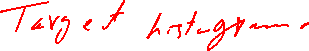 Target histogram.